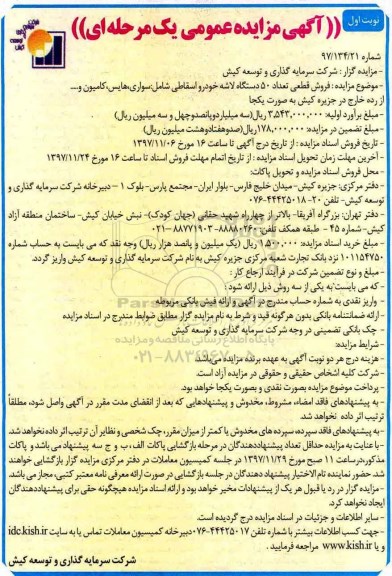 نوبت اول
((آگهی مزایده عمومی یک مرحله ای))
شماره ۹۷/۱۳۴/۲۱
- مزایده گزار : شرکت سرمایه گذاری و توسعه کیش
- موضوع مزایده : فروش قطعی تعداد ۵۰ دستگاه لاشه خودرو اسقاطی شامل:سواری،هایس،کامیون و....
از رده خارج در جزیره کیش به صورت یکجا
- مبلغ برآورد اولیه: ۳,۵۴۳,۰۰۰,۰۰۰ ریال(سه میلیارد و پانصد و چهل و سه میلیون ریال)
- مبلغ تضمین در مزایده: ۱۷۸,۰۰۰,۰۰۰ ریال(صد و هفتاد و هشت میلیون ریال)
- تاریخ فروش اسناد مزایده : از تاریخ درج آگهی تا ساعت ۱۶ مورخ ۱۳۹۷/۱۱/۰۶
- آخرین مهلت زمان تحویل اسناد مزایده : از تاریخ اتمام مهلت فروش اسناد تا ساعت ۱۶ مورخ ۱۳۹۷/۱۱/۲۴
- محل فروش اسناد مزایده و تحویل پاکات:
- دفتر مرکزی: جزیره کیش- میدان خلیج فارس- بلوار ایران- مجتمع پارس- بلوک ۱ – دبیرخانه شرکت سرمایه گذاری و
توسعه کیش- تلفن ۲۰- ۴۴۴۲۵۰۱۸-۰۷۶
- دفتر تهران: بزرگراه آفریقا- بالاتر از چهارراه شهید حقانی (جهان کودک)- نبش خیابان کیش- ساختمان منطقه آزاد
کیش- شماره ۴۵ - طبقه همکف تلفن: ۸۸۸۸۰۲۶۰- ۸۸۷۷۱۹۰۳-۰۲۱
- مبلغ خرید اسناد مزایده: ۱,۵۰۰,۰۰۰ ریال (یک میلیون و پانصد هزار ریال) وجه نقد که می بایست به حساب شماره
۱۰۱۱۵۴۷۵۰ نزد بانک تجارت شعبه مرکزی جزیره کیش به نام شرکت سرمایه گذاری و توسعه کیش واریز گردد.
- مبلغ و نوع تضمین شرکت در فرآیند ارجاع کار :
- که می بایست به یکی از سه روش ذیل ارائه شود :
- واریز نقدی به شماره حساب مندرج در آگهی و ارائه فیش بانکی مربوطه
- ارائه ضمانتنامه بانکی بدون هرگونه قید و شرط به نام مزایده گزار مطابق ضوابط مندرج در اسناد مزایده
- چک بانکی تضمینی در وجه شرکت سرمایه گذاری و توسعه کیش
- شرایط مزایده:
- هزینه درج هر دو نوبت آگهی به عهده برنده مزایده می باشد.
- شرکت کلیه اشخاص حقیقی و حقوقی در مزایده آزاد است.
- پرداخت موضوع مزایده بصورت نقدی و بصورت یکجا خواهد بود.
- به پیشنهادهای فاقد امضاء، مشروط، مخدوش و پیشنهادهایی که بعد از انقضای مدت مقرر در آگهی واصل شود، مطلقاً
ترتیب اثر داده نخواهد شد.
-به پیشنهادهای فاقد سپرده، سپرده های مخدوش یا کمتر از میزان مقرر، چک شخصی و نظایر آن ترتیب اثر داده نخواهد شد.
-با عنایت به مزایده حداقل تعداد پیشنهاددهندگان در مرحله بازگشایی پاکات الف، ب و ج سه پیشنهاد می باشد و پاکات
مذکور،در ساعت ۱۱ صبح مورخ ۱۳۹۷/۱۱/۲۹ در جلسه کمیسیون معاملات در دفتر مرکزی مزایده گزار بازگشایی خواهند
شد. حضور نماینده تام الاختیار پیشنهاد دهندگان در جلسه بازگشایی در صورت ارائه معرفی نامه معتبر کتبی، مجاز می باشد.
- مزایده گزار در رد یا قبول هر یک از پیشنهادات مخیر خواهد بود و ارائه اسناد مزایده هیچگونه حقی برای پیشنهاددهندگان
ایجاد نخواهد کرد.
- سایر اطلاعات و جزئیات در اسناد مزایده درج گردیده است.
-جهت کسب اطلاعات بیشتر با شماره تلفن ۴۴۴۲۵۰۱۷-۰۷۶ دبیرخانه کمیسیون معاملات تماس یا به سایت idc.kish.ir
و یا www.kish.ir مراجعه فرمایید .
شرکت سرمایه گذاری و توسعه کیش